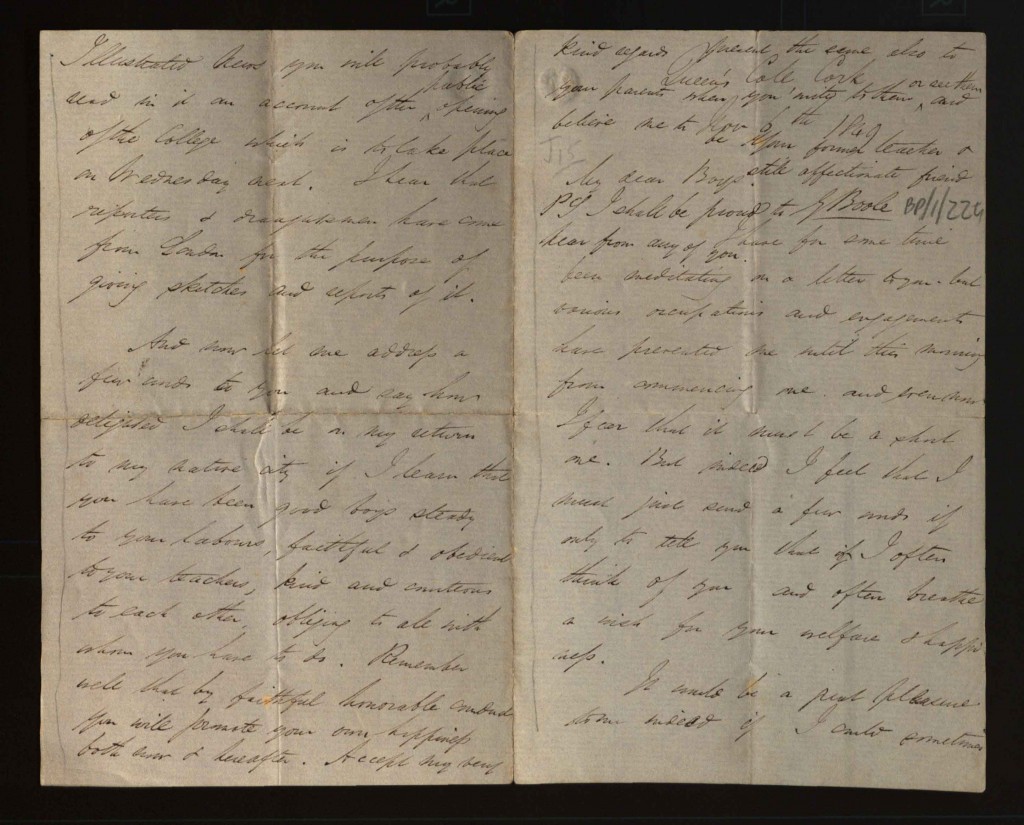 Illustrated News you will probably
read in it an account of the public opening
of the College which is to take place
on Wednesday next. I hear that
reporters & draughtsmen have come
from London for the purpose of
giving sketches and reports of it.
And now let me address a
few words to you and say how
delighted I shall be on my return
to my native city if I learn that
you have been good boys steady
to your labours, faithful & obedient
to your teachers, kind and courteous
to each other, obliging to all with
whom you have to do. Remember
well that by faithful honorable conduct
you will promote your own happiness
both now & hereafter. Accept my very
kind regards present the same also to
your parents when you write to them or see them and
believe me to be your former teacher &
still affectionate friend
G Boole
PS I shall be proud to
hear from any of you.
BP/1/224
Queen's Coll Cork
Nov the 1849
My dear Boys
I have for some time
been meditating on a letter to you. but
various occupations and engagements
have prevented me until this morning
from commencing one. and even now
I fear that it must be a short
one. But indeed I feel that I
must just send a few words if
only to tell you that if I often
think of you and often breathe
a wish for your welfare & happi
ness.
It would be a great pleasure
to me indeed if I could sometimes